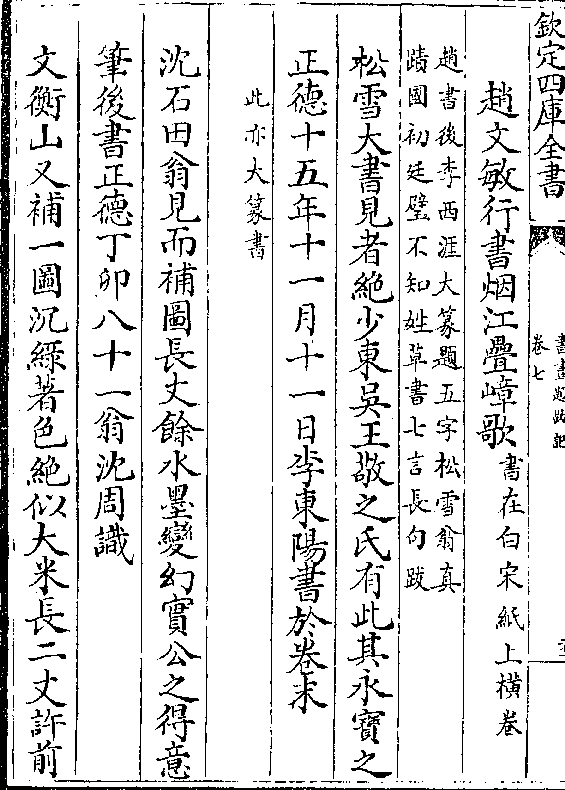 欽定四庫全書
書畫題跋記
卷七
趙文敏行書烟江疊嶂歌書在白宋紙上橫卷
趙書後李西涯大篆題五字松雪翁真
蹟國初廷璧不知姓草書七言長句跋
松雪大書見者絶少東吳王敬之氏有此其永寶之
正德十五年十一月十一日李東陽書於卷末
此亦大篆書
沈石田翁見而補圖長丈餘水墨變幻實公之得意
筆後書正德丁卯八十一翁沈周識
文衡山又補一圖沉綠著色絶似大米長二丈許前